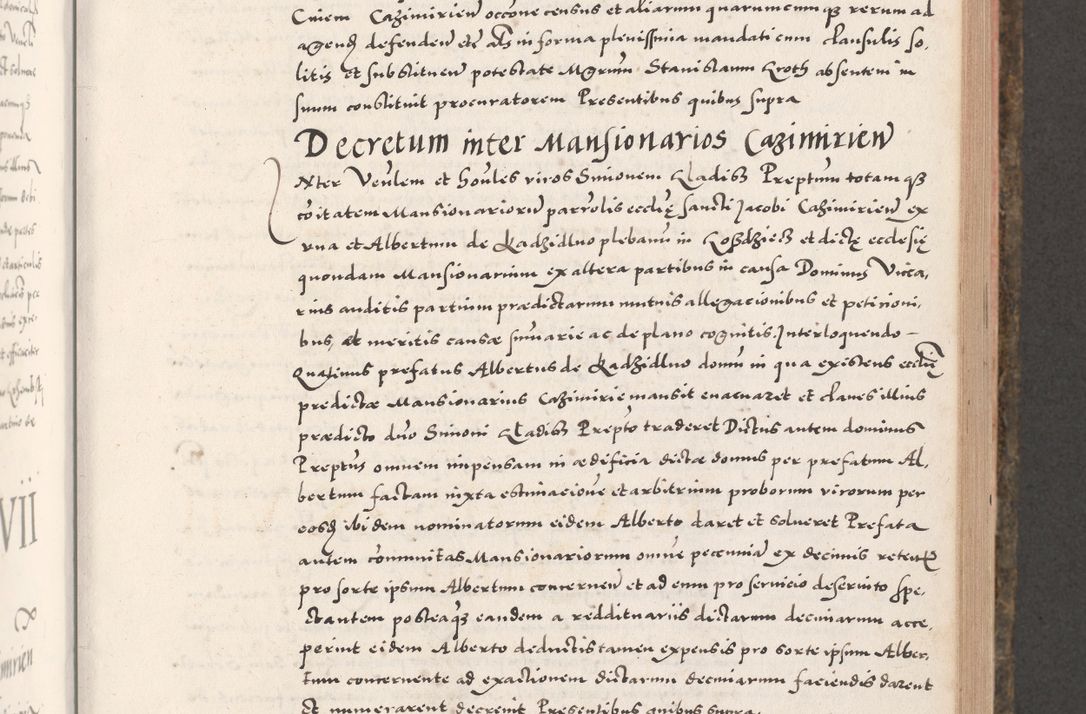 Cuiem Cazimirien̄ occōne census et aliarum quarumcumqꝫ rerum ad
agend̄ defenden̄ etc̄ als̄ in forma plenissima mandati cum clausulis so,
litis Et substituen̄ potestate Mgrum̄ Stanislaum Kroth absentem in
suum constituit procuratorem Presentibus quibus supra
Decretum inter Mansionarios Cazimirien̄
Nter Ven̄lem et hon̄les viros Simonem Kladisz Preptum totamqꝫ
cōitatem Mansionariorū parrōlis ecclię sancti Jacobi Cazimirien̄ ex
vna et Albertum de Radzidluo plebanū in dictę ecclesię
quondam Mansionarium ex altera partibus in causa Dominus Vicca,
rius auditis partium prædictarum mutuis allegacionibus et peticioni,
bus, at meritis causæ sūmarie ac de plano cognitis. Interloquendo –
Quatenus prefatus Albertus de Radzidluo domū in qua existens ecclię
predictæ Mansionarius Cazimirie mansit euacuaret et claues illius
prædicto dn̄o Simoni Kladisz Prepto traderet Dictus autem dominus
Preptus omnem impensam in ædificia dictæ domus per prefatum Al,
bertum factam iuxta estimacionē et arbitrium proborum virorum per
eosd̄ ibidem nominatorum eidem Alberto daret et solueret Prefata
autem cōmunitas Mansionariorum omnē pecuniā ex decimis
pro sorte ipsum Albertum concernen̄ et ad eum pro seruicio deseruito spe,
ctantem posteaqꝫ eandem a reddituariis dictarum decimarum acce,
perint eidem Alberto deductis tamen expensis pro sorte ipsum Alber,
tum concernente ad exactionem dictarum decimarum faciendis darent
Et numerarent decreuit Presentibus quibus supra.
VII